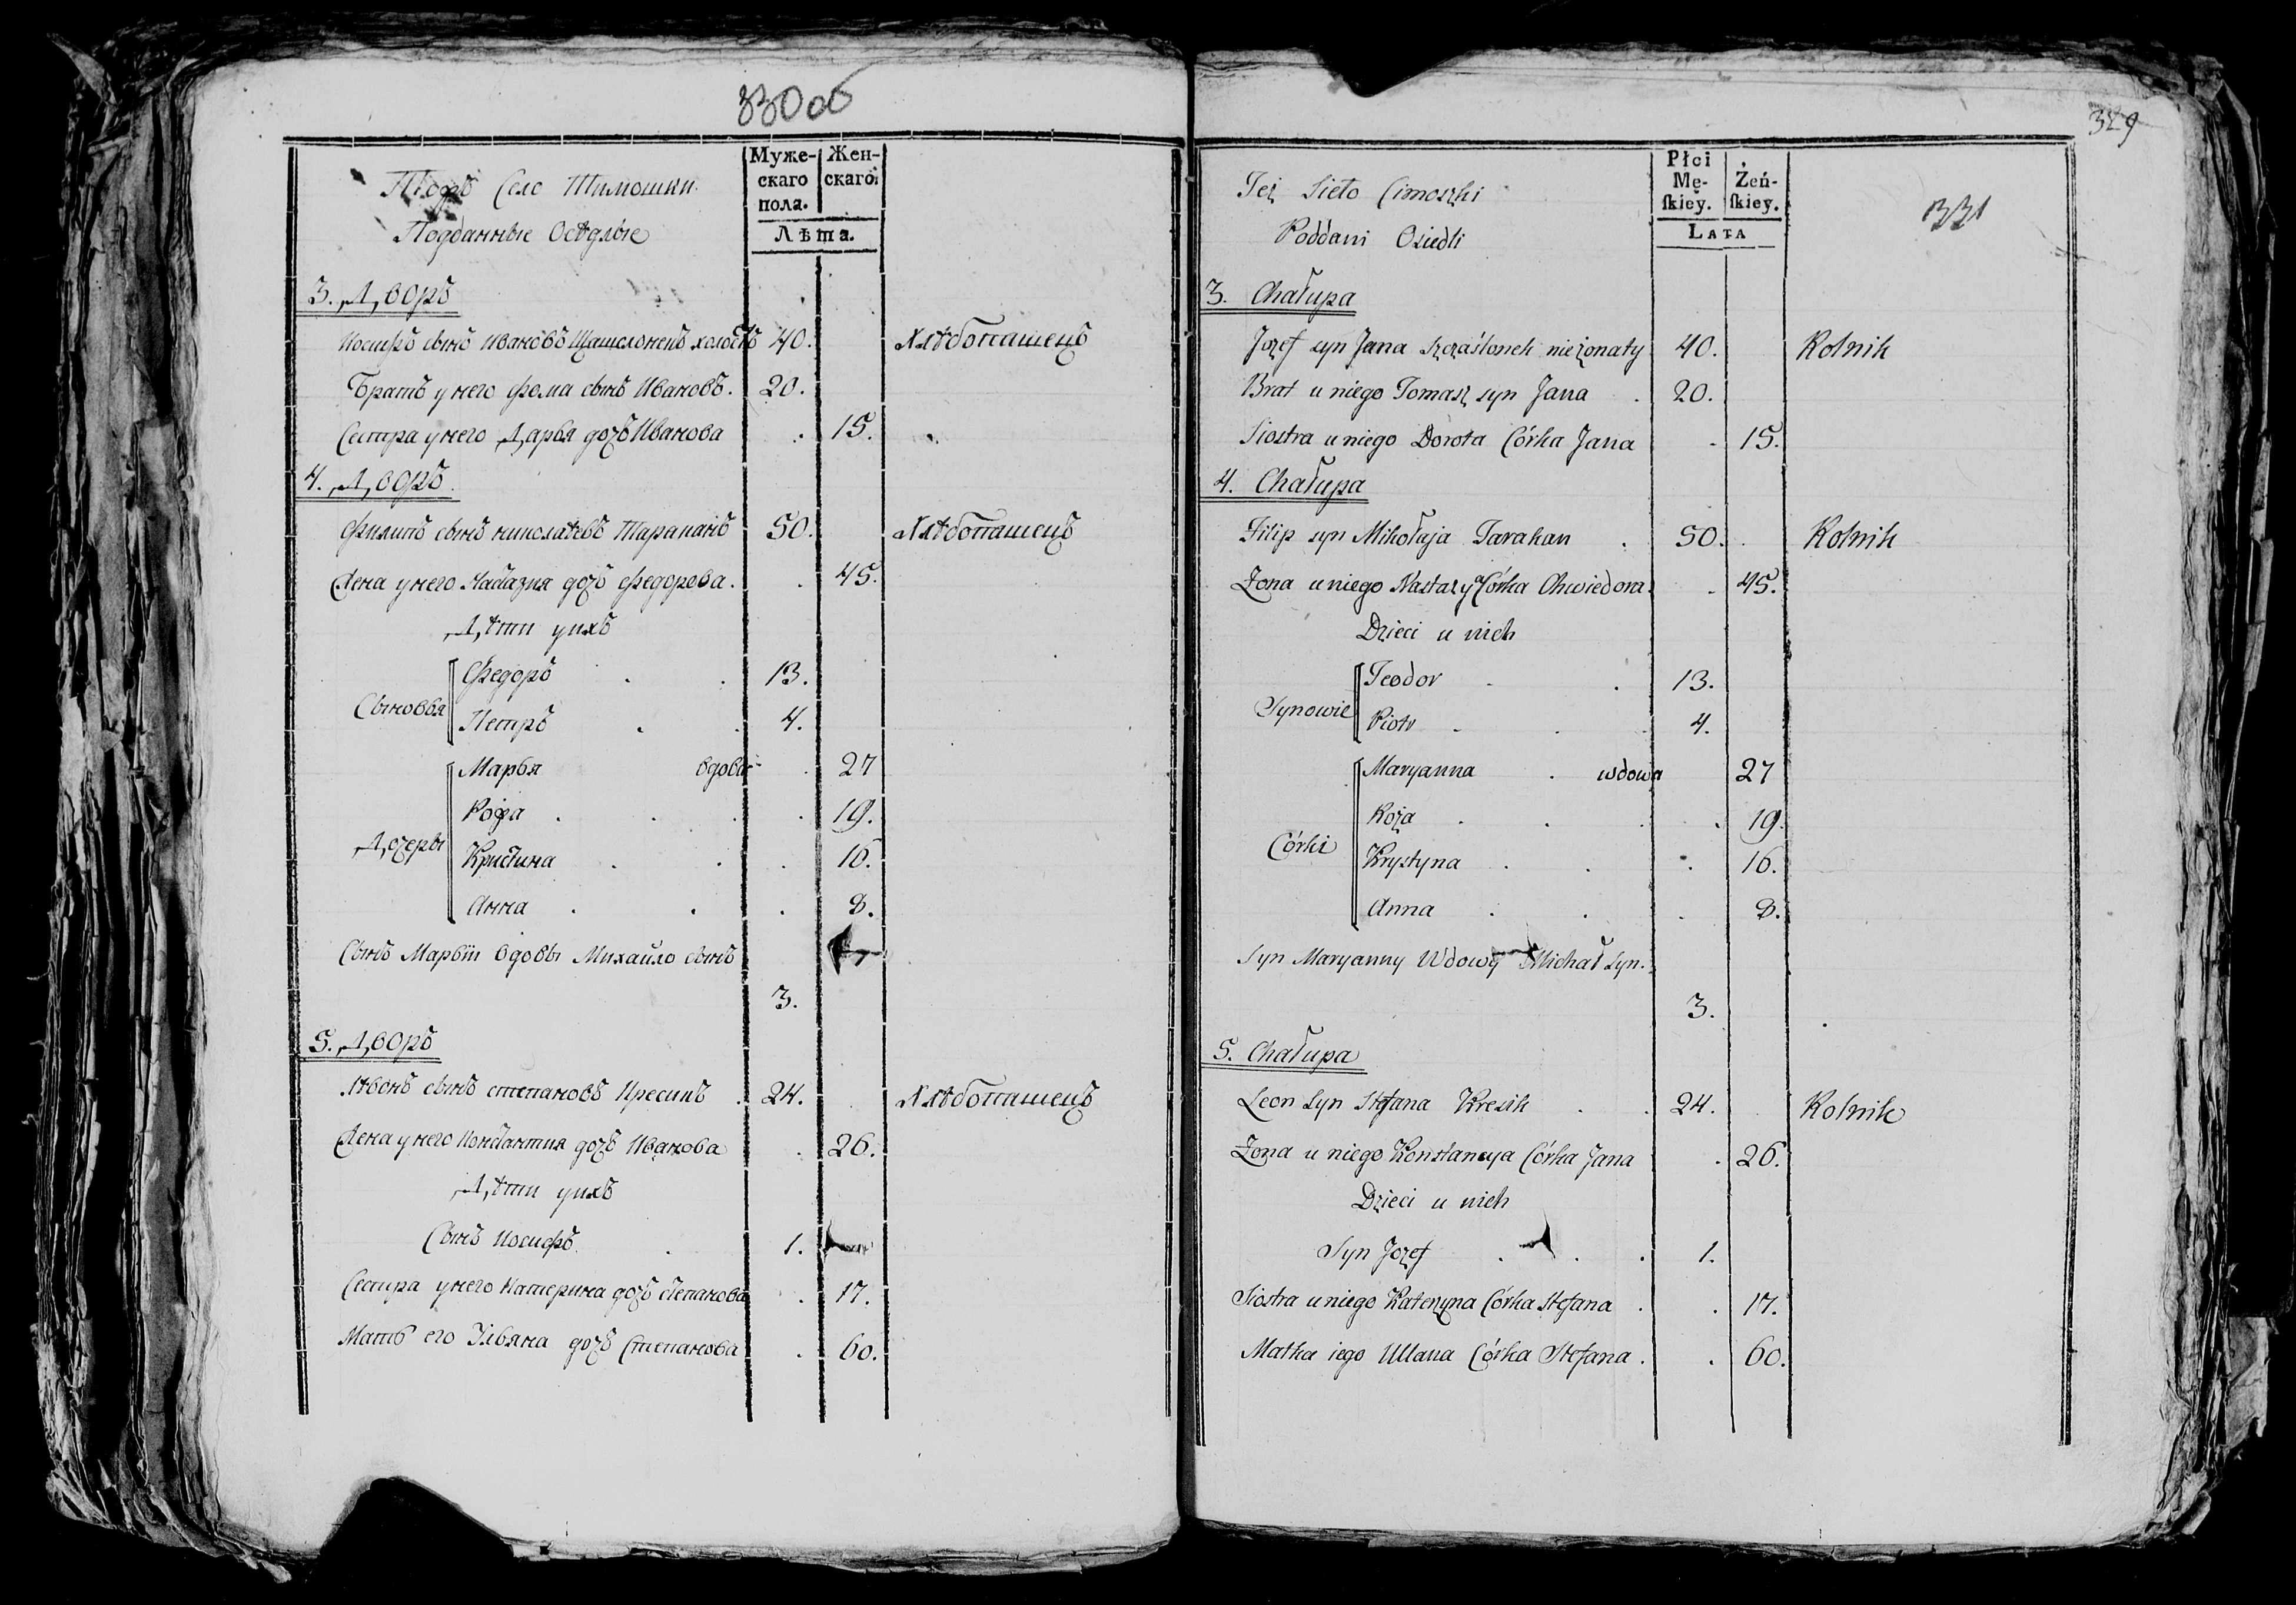 330об
Тожъ Село Тимошки
Подданные Оседлые
Муже-
скаго
пола.
Жен-
скаго.
Лѣта.
3. Дворъ
Иосифъ сынъ Ивановъ Щацслонекъ холостъ 40. Хлѣбопашецъ
Братъ у него Фома сынъ Ивановъ. 20.
Сестра у него Дарья дочь Иванова 15.
4. Дворъ
Филипъ сынъ Николаевъ Тараканъ 50. Хлѣбопашецъ
Жена у него Настазия дочь Федорова. 45.
Дѣти у нихъ
Сыновья
Федоръ 13.
Петръ 4.
Дочеры
Марья вдова 27
Роза 19.
Кристина 16.
Анна 8.
Сынъ Марьїи вдовы Михайло сынъ
3.
5. Дворъ
Лѣвонъ сынъ Степановъ Кресикъ 24. Хлѣбопашецъ
Жена у него Константия дочь Иванова 26.
Дѣти у нихъ
Сынъ Иосифъ 1.
Сестра у него Катерина дочь Степанова 17.
Мать его Ульяна дочь Степанова 60.
329
331
Też Sieło Cimoszki
Poddani Osiedli
Płci
Mę-
ſkiey.
Żeń-
ſkiey.
LATA
3. Chałupa
Jozef syn Jana Szcząślonek nieżonaty 40. Rolnik
Brat u niego Tomasz syn Jana 20.
Siostra u niego Dorota Córka Jana 15.
4. Chałupa
Filip syn Mikołaja Tarakan 50. Rolnik
Żona u niego Nastazya Córka Chwiedora 45.
Dzieci u nich
Synowie
Teodor 13.
Piotr 4.
Córki
Maryanna wdowa 27
Roza 19.
Krystyna 16.
Anna 8.
Syn Maryanny Wdowy Michał Syn.
3.
5. Chałupa
Leon Syn Stefana Kresik 24. Rolnik
Żona u niego Konstancya Córka Jana 26.
Dzieci u nich
Syn Jozef 1.
Siostra u niego Katerzyna Córka Stefana 17.
Matka iego Ullana Córka Stefana 60.